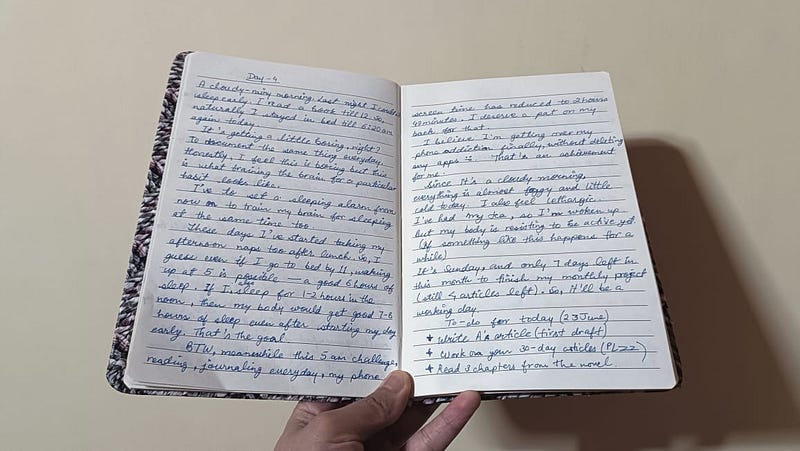 Day-4
A cloudy-rainy morning. Last night I couldn't
sleep early. I read a book till 12. So,
naturally I stayed in bed till 6:20am
again today.
It's getting a little boring, right?
To document the same thing everyday.
Honestly, I feel this is boring but this
is what training the brain for a particular
habit looks like.
I've to set a sleeping alarm from
now on to train my brain for sleeping
at the same time too.
These days I've started taking my
afternoon naps too after lunch. So, I
guess even if I go to bed by 11, waking
up at 5 is possible — a good 6 hours of
sleep. If I sleep for 1-2 hours in the
noon, then my body would get good 7-8
hours of sleep even after starting my day
early. That's the goal.
BTW, meanwhile this 5 am challenge,
reading, journaling everyday, my phone
screen time has reduced to 2 hours
49 minutes. I deserve a pat on my
back for that.
I believe I'm getting over my
phone addiction finally, without deleting
any apps. That's an achievement
for me.
Since it's a cloudy morning,
everything is almost foggy and little
cold today. I also feel lethargic.
I've had my tea, so I'm woken up
but my body is resisting to be active yet.
(If something like this happens for a
while)
It's Sunday, and only 7 days left in
this month to finish my monthly project
(still 4 articles left). So, It'll be a
working day.
To-do for today (23 June)
Write A's article (first draft)
Work on your 30-day articles
Read 3 chapters from the novel.